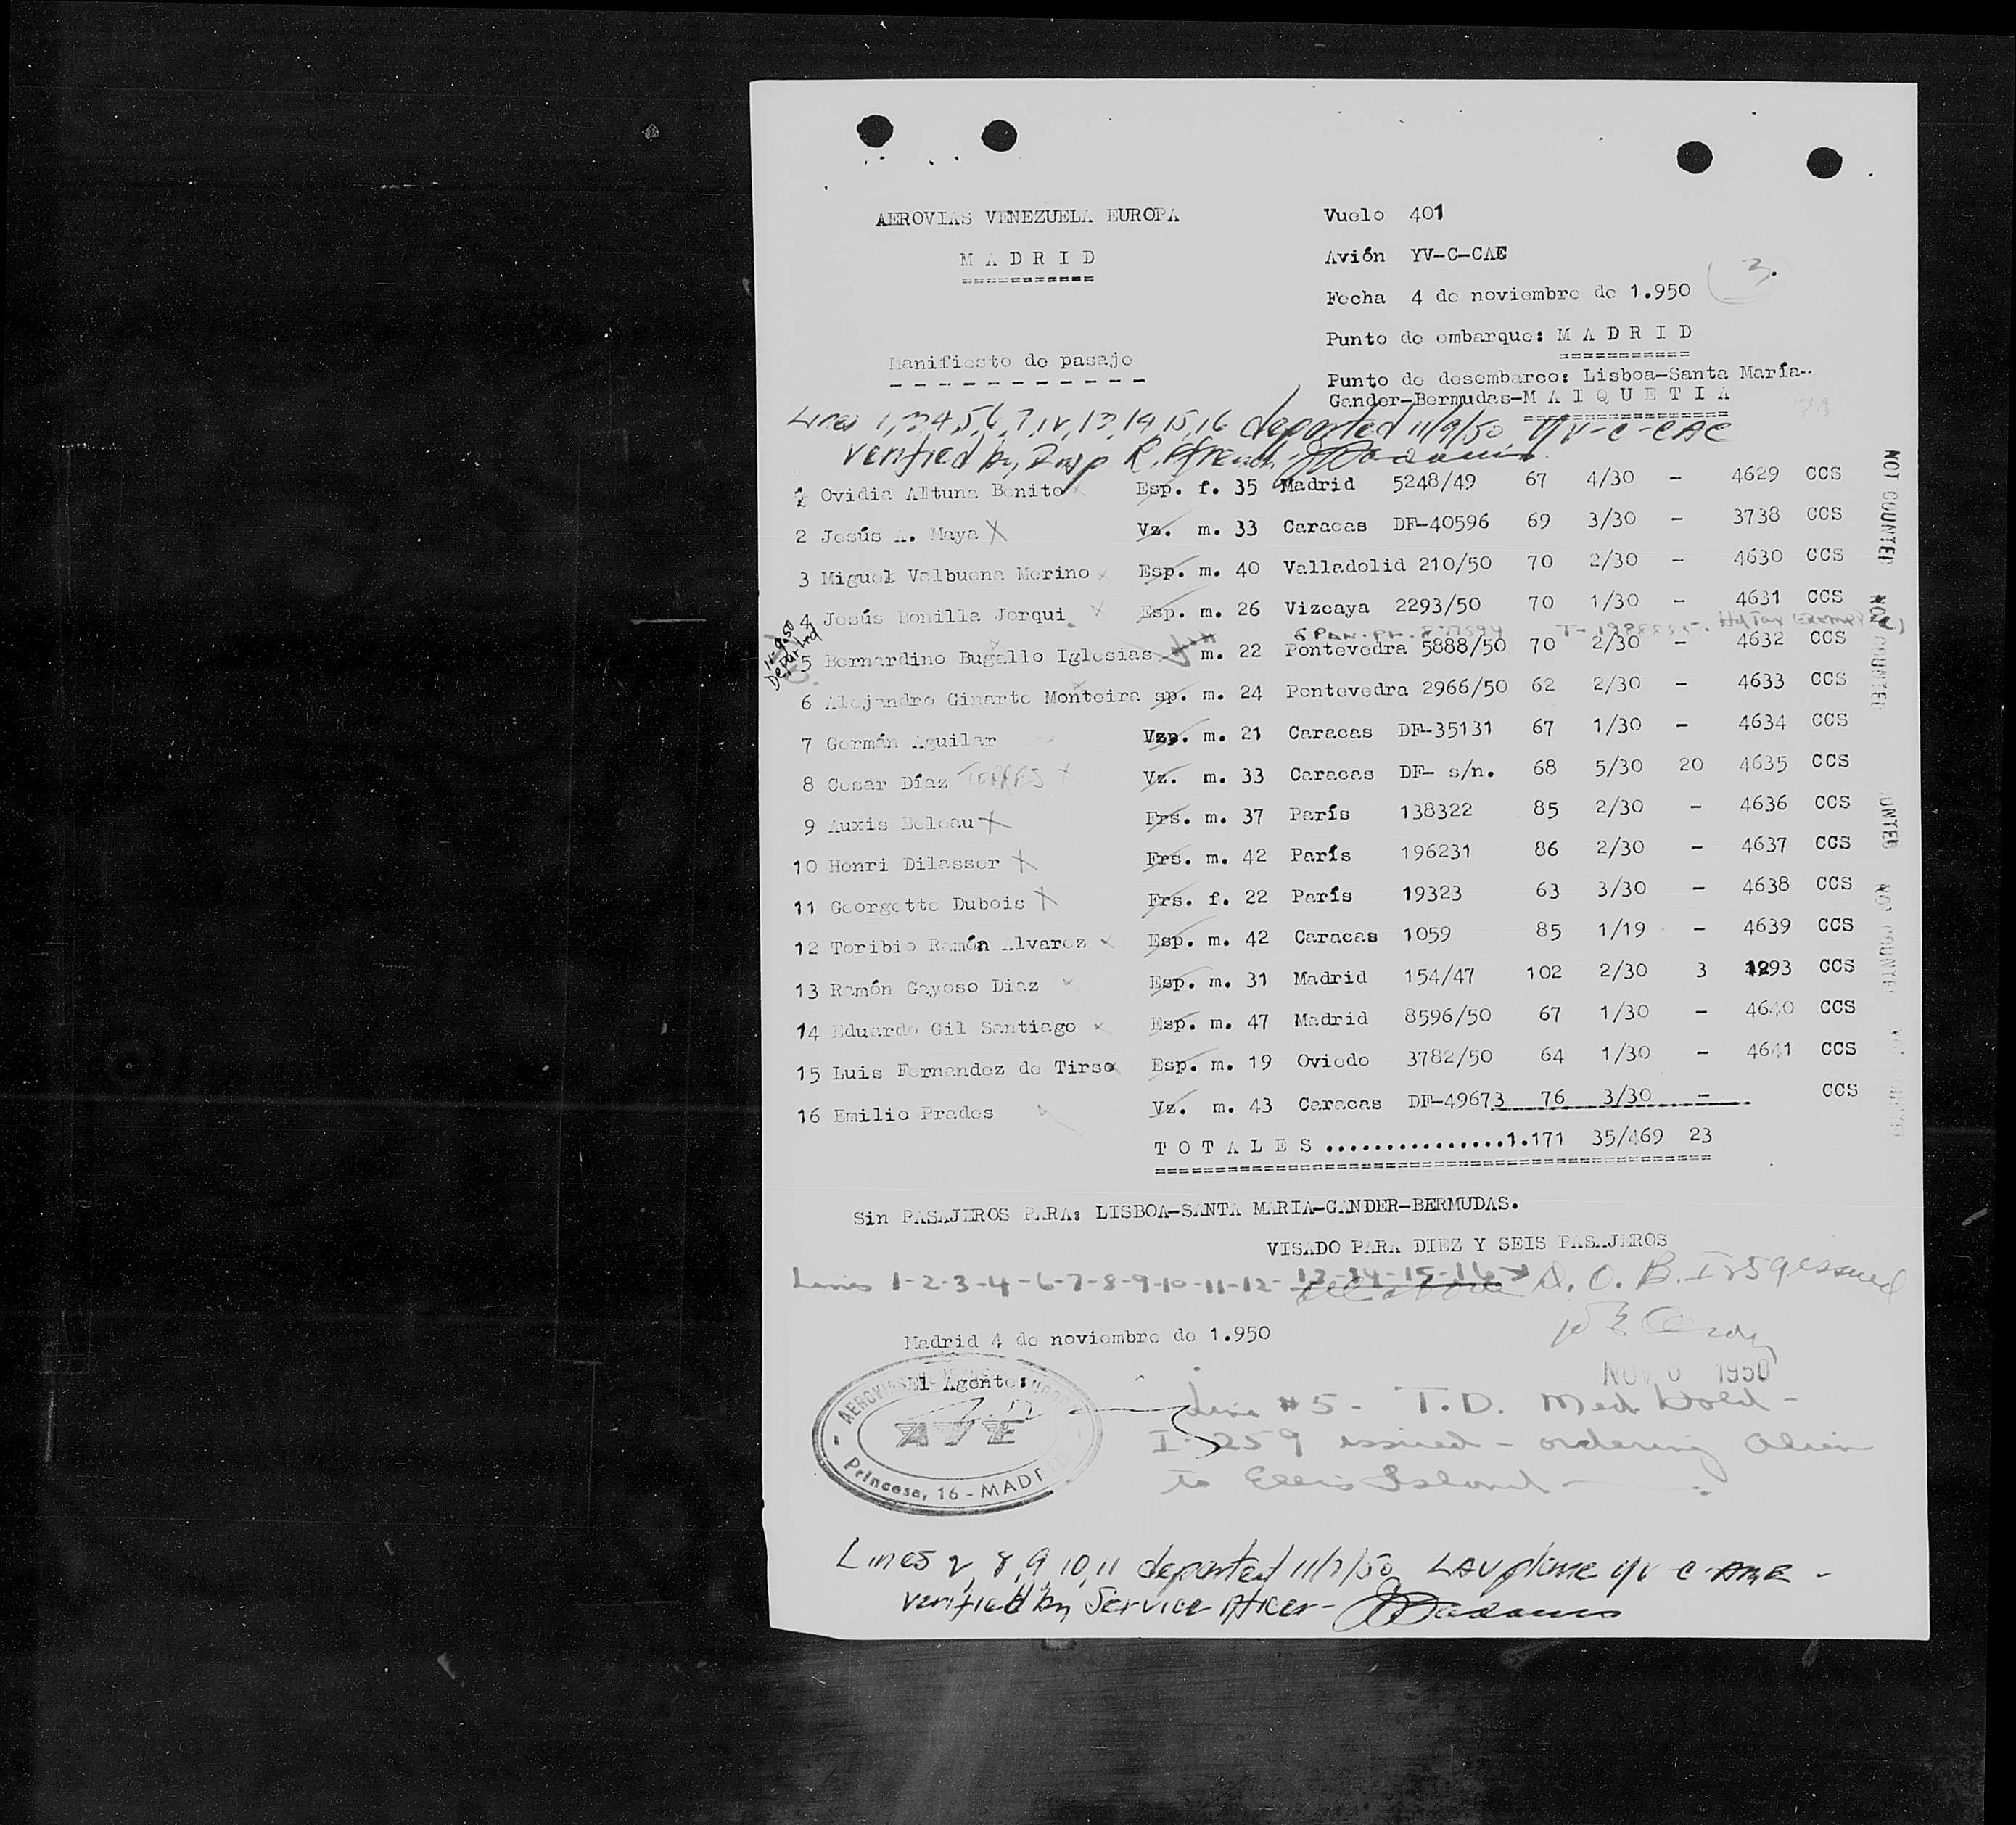 AEROVIAS VENEZUELA EUROPA
M A D R I D
===========
Vuelo 401
Avión YV-C-CAE
Fecha 4 de noviembre de 1.950
3.
Punto de embarque: M A D R I D
===========
Manifiesto de pasaje
Punto de desembarco: Lisboa-Santa María-
Gander-Bermudas-M A I Q U E T I A
Lines 1, 3, 4, 5, 6, 7, 12, 13, 14, 15, 16 departed 11/9/50 YV-C-CAE
verified by Insp R.
1 Ovidia Altuna Benito Esp. f. 35 Madrid 5248/49 67 4/30 - 4629 CCS
2 Jesús A. Maya X Vz. m. 33 Caracas DF-40596 69 3/30 - 3738 CCS
3 Miguel Valbuena Merino Esp. m. 40 Valladolid 210/50 70 2/30 - 4630 CCS
4 Jesús Bonilla Jorqui Esp. m. 26 Vizcaya 2293/50 70 1/30 - 4631 CCS
11-9-50 Departed
5 Bernardino Bugallo Iglesias m. 22 Pontevedra 5888/50 70 2/30 - 4632 CCS
6 Alejandro Ginarte Monteira sp. m. 24 Pontevedra 2966/50 62 2/30 - 4633 CCS
7 Germán Aguilar Vz. m. 21 Caracas DF-35131 67 1/30 - 4634 CCS
8 Cesar Díaz TORRES X Vz. m. 33 Caracas DF- s/n. 68 5/30 20 4635 CCS
9 Auxis Beleau X Frs. m. 37 París 138322 85 2/30 - 4636 CCS
10 Henri Dilasser X Frs. m. 42 París 196231 86 2/30 - 4637 CCS
11 Georgette Dubois X Frs. f. 22 París 19323 63 3/30 - 4638 CCS
12 Toribio Ramón Alvarez X Esp. m. 42 Caracas 1059 85 1/19 - 4639 CCS
13 Ramón Gayoso Diaz Esp. m. 31 Madrid 154/47 102 2/30 3 CCS
14 Eduardo Gil Santiago X Esp. m. 47 Madrid 8596/50 67 1/30 - 4640 CCS
15 Luis Fernandez de Tirso Esp. m. 19 Oviedo 3782/50 64 1/30 - 4641 CCS
16 Emilio Prades Vz. m. 43 Caracas DF-49673 76 3/30 - CCS
T O T A L E S ...............1.171 35/469 23
NOT COUNTED
NOT COUNTED
UNTED
NOT COUNTED
Sin PASAJEROS PARA: LISBOA-SANTA MARIA-GANDER-BERMUDAS.
VISADO PARA DIEZ Y SEIS PASAJEROS
Lines 1-2-3-4-6-7-8-9-10-11-12-13-14-15-16 D.O.B. I 259 issued
Madrid 4 de noviembre de 1.950
NOV 6 1950
El Agente:
AEROVIAS
AVE
Princesa, 16 - MADRID
Line #5 - T.D. Med. Hold -
I-259 issued - ordering alien
to Ellis Island -
Lines 2, 8, 9, 10, 11 departed 11/7/50 LAV plane YV C AME -
verified by Service Officer -